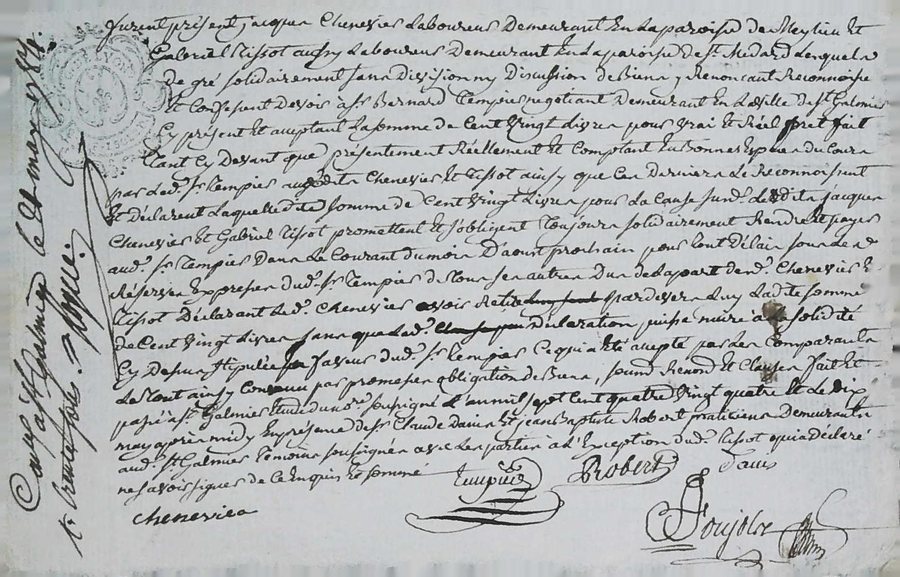 furent présent jacques Chenevier Laboureur Demeurant En La paroisse de Meylieu Et
Gabriel Tissot aussy Laboureur Demeurant En La paroisse de St Medard Lesquels
De gré solidairement sans Division ny Discussion de Biens y Renoncant Reconnoisse
Et Confessent Devoir à Sr Bernard Tempier negotiant Demeurant En La Ville de St Galmier
Cy présent Et aceptant La somme de Cent Vingt Livres pour Vrai Et Réel prêt fait
tant Cy Devant que présentement Réellement Et Comptant En Bonnes Espèces du Cours
par Led. Sr Tempier audits Chenevier Et Tissot ainsy que Ces Derniers Le Reconnoissent
Et Déclarent Laquelle dite somme de Cent Vingt Livres pour La Cause susd. Lesdits jacques
Chenevier Et Gabriel Tissot promettent Et s'obligent Toujours solidairement Rendre Et payer
aud. Sr Tempier Dans Le Courant du mois D'aoust prochain pour tout Délai sous La
Réserve Expresse dud. Sr Tempier de Tous ses autres Dus de La part dud. Chenevier Et
Tissot Déclarant Led. Chenevier avoir Retiré par devers Luy Ladite somme
de Cent Vingt Livres sans que Lad. Déclaration puisse nuire à La solidité
Cy Dessus stipulée En faveur dud. Sr Tempier Ce qui a Eté acepté par Les Comparants
Le Tout ainsy Convenu par promesses obligation de Biens, soumis Renond Et Clauses fait Et
passé à St Galmier Etude du nore soussigné L'an mil sept Cent quatre Vingt quatre Et Le Dix
may après midy En présence de Sr Claude Et jean Baptiste Robert praticiens Demeurants
aud. St Galmier Témoins soussignés avec Les parties à L'Exception dud. Tissot qui a déclaré
ne savoir signer de Ce Enquis Et sommé
Chenevier
Tempier
Robert
Controllé à St Galmier le 20 may 1784.